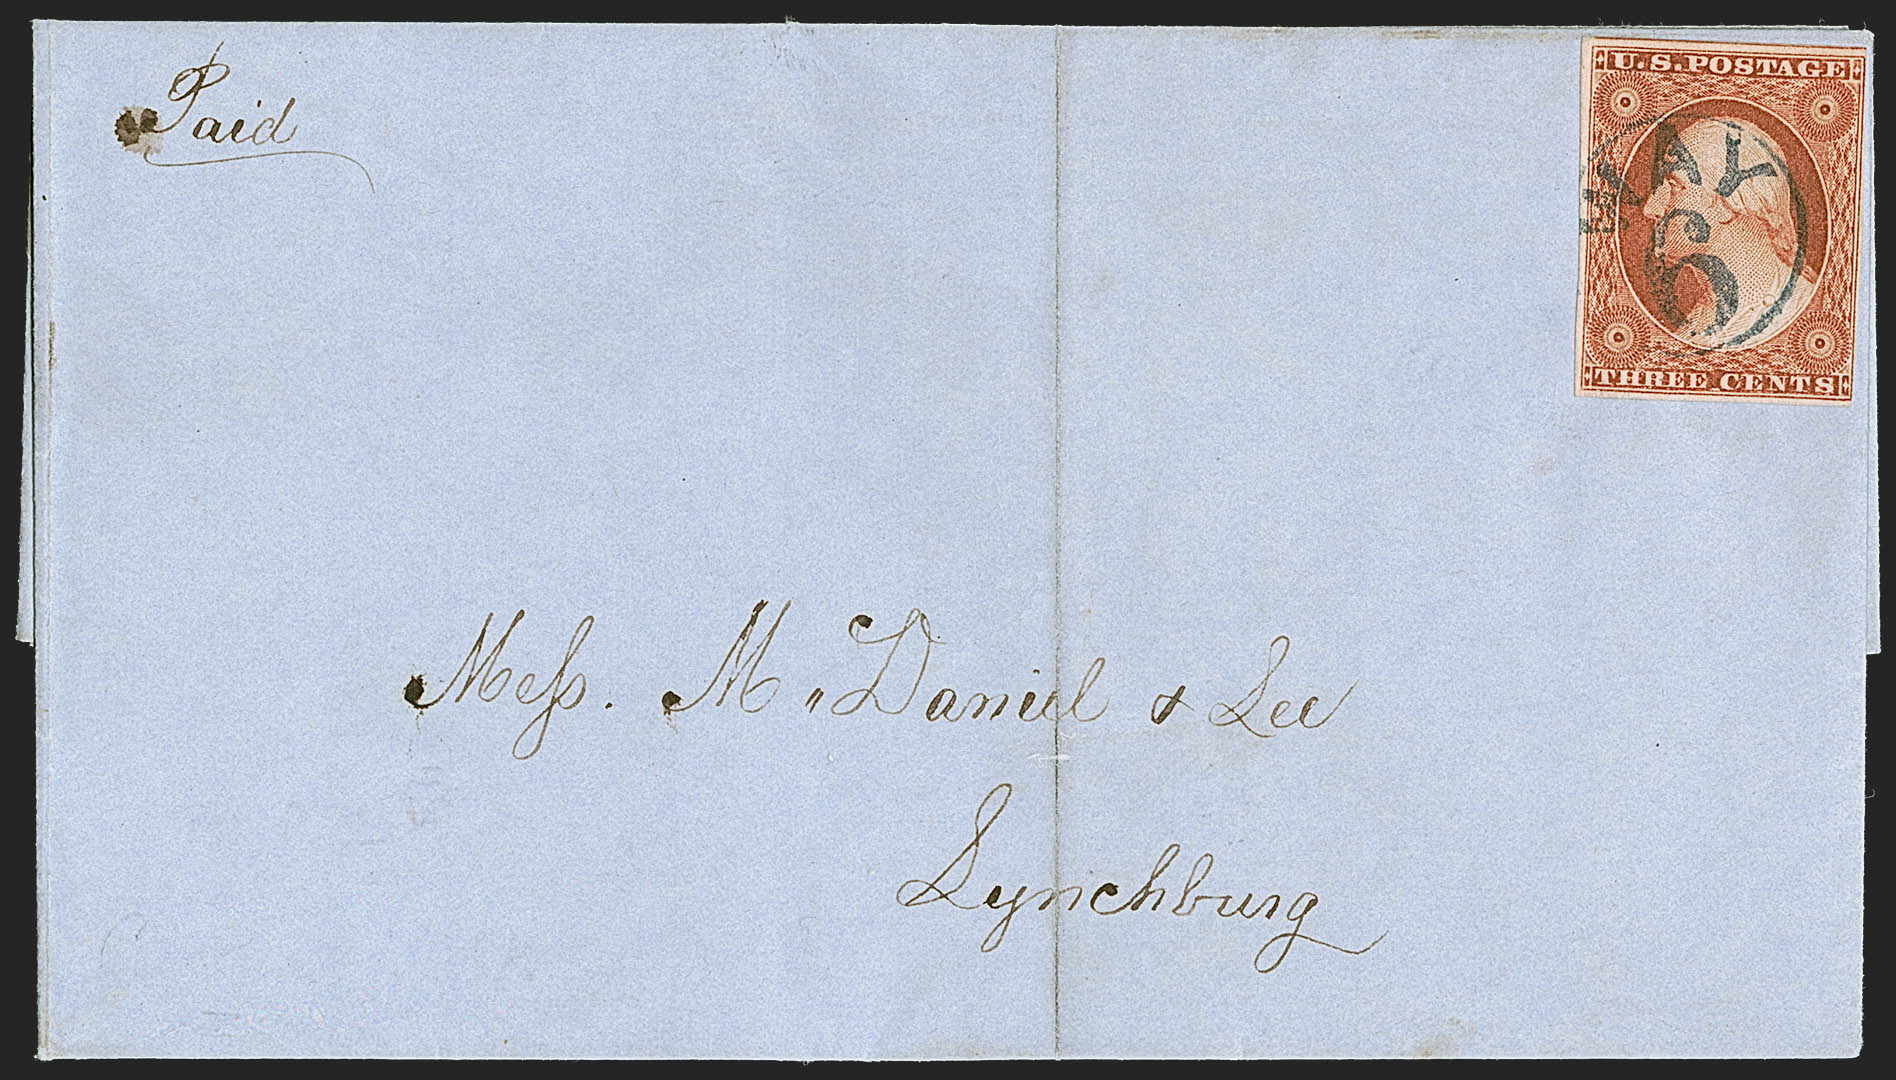 Paid
U.S. POSTAGE
MAY
6
THREE CENTS
Mess. M"Daniel & Lee
Lynchburg